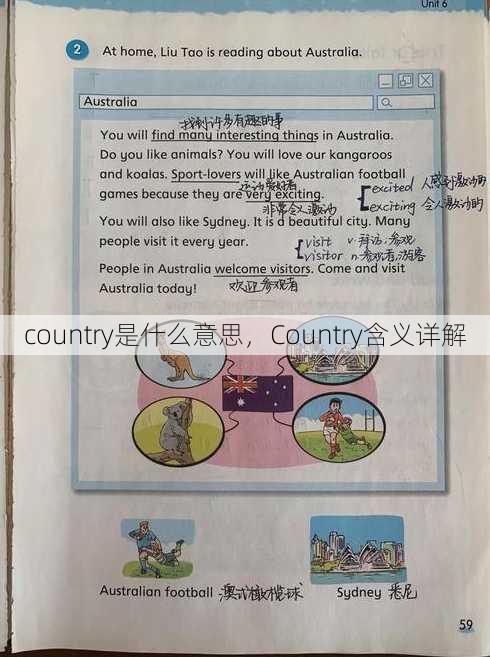 Unit 6
2 At home, Liu Tao is reading about Australia.
Australia
找到许多有趣的事
You will find many interesting things in Australia.
Do you like animals? You will love our kangaroos
and koalas. Sport-lovers will like Australian football
运动爱好者
excited 人感到激动的
games because they are very exciting.
exciting 令人激动的
非常令人激动
You will also like Sydney. It is a beautiful city. Many
people visit it every year.
visit v. 拜访;参观
visitor n. 参观者,游客
People in Australia welcome visitors. Come and visit
Australia today!
欢迎参观者
country是什么意思，Country含义详解
Australian football 澳式橄榄球
Sydney 悉尼
59